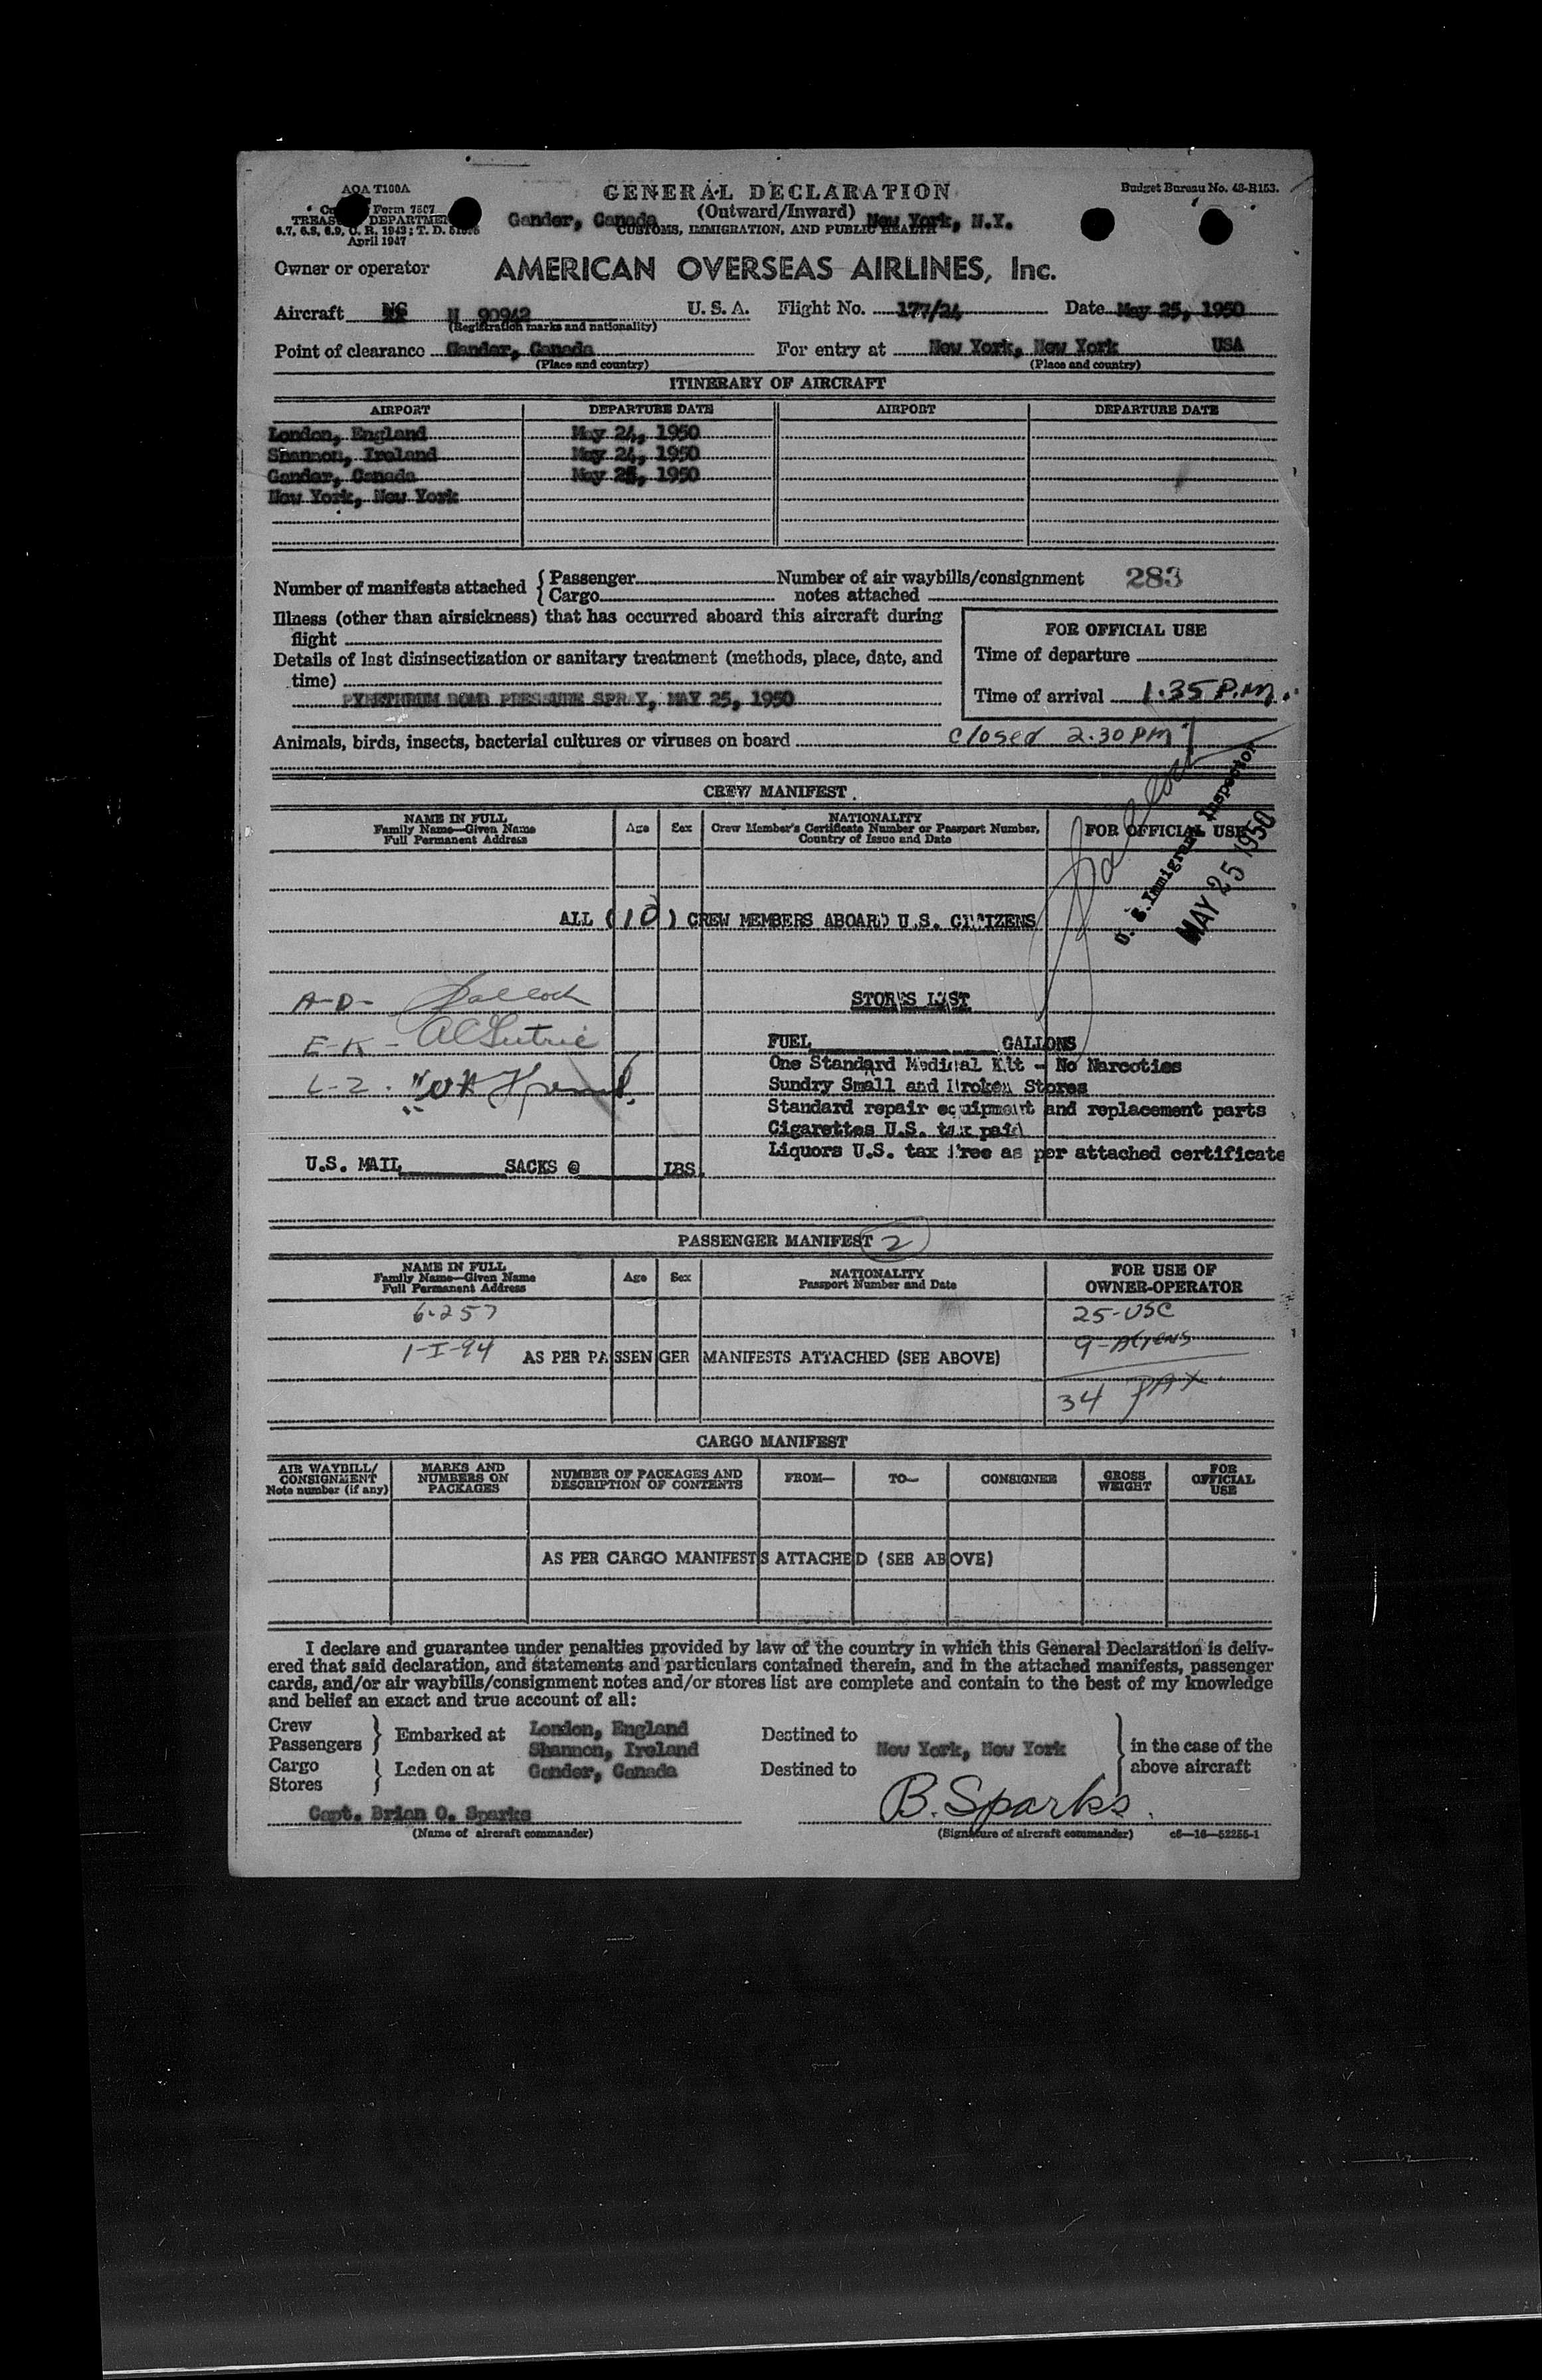 AOA T100A
GENERAL DECLARATION
Budget Bureau No. 48-R153.
Form 7507
(Outward/Inward)
TREAS DEPARTMENT
Gander, Canada New York, N.Y.
6.7, 6.8, 6.9, C. R. 1943; T. D.
CUSTOMS, IMMIGRATION, AND PUBLIC HEALTH
April 1947
Owner or operator AMERICAN OVERSEAS AIRLINES, Inc.
Aircraft NC N 90942 U. S. A. Flight No. 177/24 Date May 25, 1950
(Registration marks and nationality)
Point of clearance Gander, Canada For entry at New York, New York USA
(Place and country) (Place and country)
ITINERARY OF AIRCRAFT
AIRPORT DEPARTURE DATE AIRPORT DEPARTURE DATE
London, England May 24, 1950
Shannon, Ireland May 24, 1950
Gander, Canada May 25, 1950
New York, New York
Number of manifests attached { Passenger Number of air waybills/consignment 283
{ Cargo notes attached
Illness (other than airsickness) that has occurred aboard this aircraft during
flight
FOR OFFICIAL USE
Details of last disinsectization or sanitary treatment (methods, place, date, and
Time of departure
time)
PYRETHRUM BOMB PRESSURE SPRAY, MAY 25, 1950
Time of arrival 1.35 P.M.
Animals, birds, insects, bacterial cultures or viruses on board closed 2.30 PM
CREW MANIFEST.
NAME IN FULL
Family Name—Given Name
Full Permanent Address
Age
Sex
NATIONALITY
Crew Member's Certificate Number or Passport Number,
Country of Issue and Date
FOR OFFICIAL USE
U. S. Immigrant Inspector
MAY 25 1950
ALL (10) CREW MEMBERS ABOARD U.S. CITIZENS
A-D-
STORES LIST
E-K-
FUEL GALLONS
One Standard Medical Kit - No Narcotics
L-Z.
Sundry Small and Broken Stores
Standard repair equipment and replacement parts
Cigarettes U.S. tax paid
Liquors U.S. tax free as per attached certificate
U.S. MAIL SACKS @ LBS.
PASSENGER MANIFEST 2
NAME IN FULL
Family Name—Given Name
Full Permanent Address
Age
Sex
NATIONALITY
Passport Number and Date
FOR USE OF
OWNER-OPERATOR
6-257
25-USC
1-I-94
9-Aliens
AS PER PASSENGER MANIFESTS ATTACHED (SEE ABOVE)
34 PAX
CARGO MANIFEST
AIR WAYBILL/
CONSIGNMENT
Note number (if any)
MARKS AND
NUMBERS ON
PACKAGES
NUMBER OF PACKAGES AND
DESCRIPTION OF CONTENTS
FROM—
TO—
CONSIGNEE
GROSS
WEIGHT
FOR
OFFICIAL
USE
AS PER CARGO MANIFESTS ATTACHED (SEE ABOVE)
I declare and guarantee under penalties provided by law of the country in which this General Declaration is deliv-
ered that said declaration, and statements and particulars contained therein, and in the attached manifests, passenger
cards, and/or air waybills/consignment notes and/or stores list are complete and contain to the best of my knowledge
and belief an exact and true account of all:
Crew
Passengers } Embarked at London, England Destined to
Shannon, Ireland New York, New York } in the case of the
Cargo
Stores } Laden on at Gander, Canada Destined to above aircraft
Capt. Brian O. Sparks B. Sparks.
(Name of aircraft commander) (Signature of aircraft commander) c6—16—52255-1